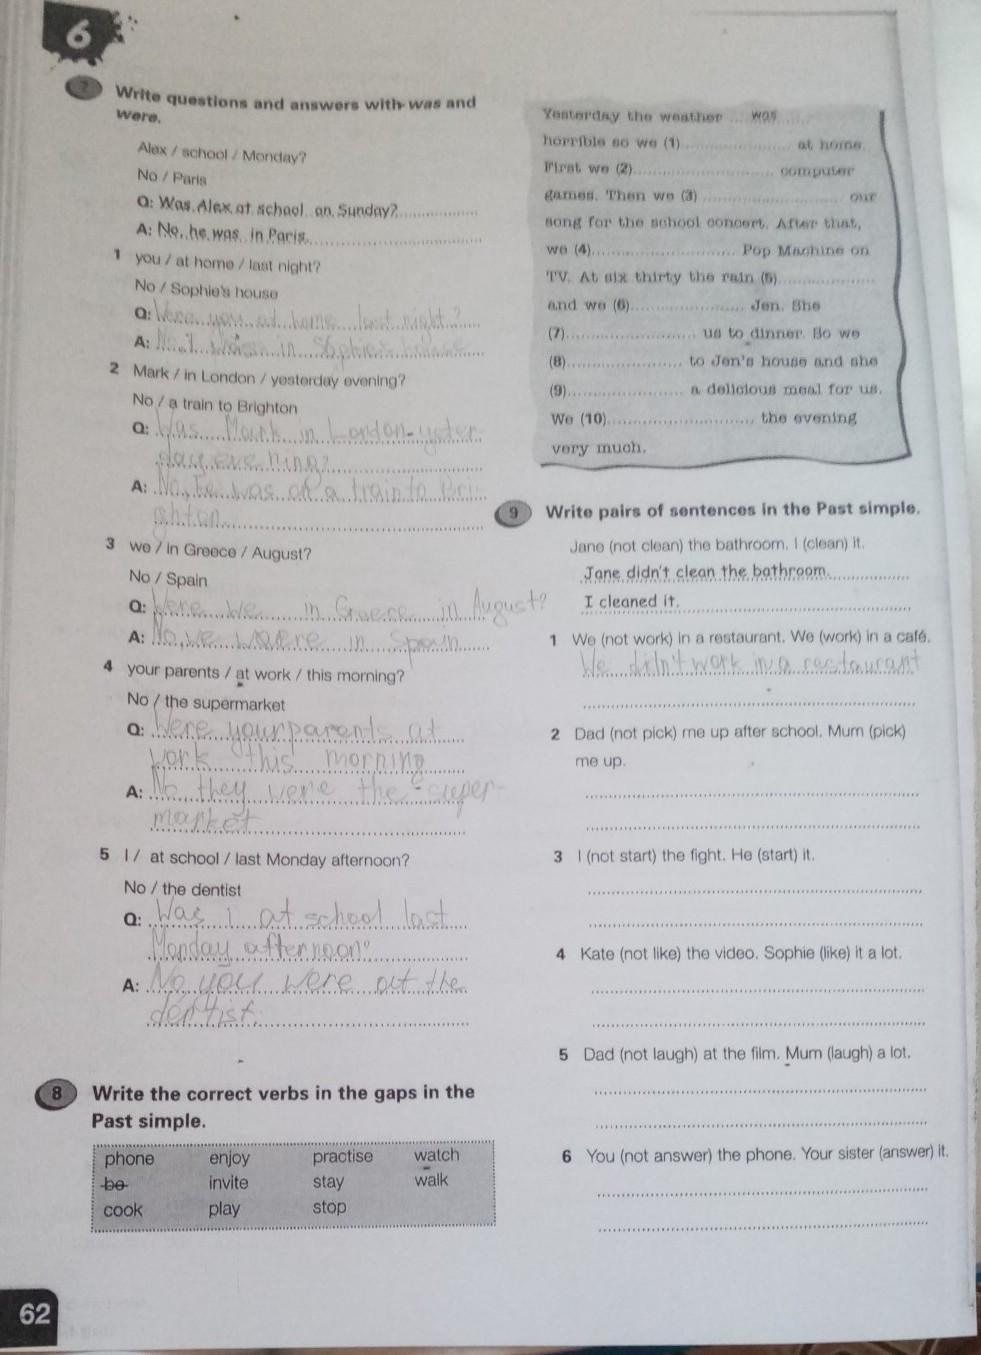 6
7 Write questions and answers with was and
were.
Alex / school / Monday?
No / Paris
Q: Was Alex at school on Sunday?
A: No, he was in Paris.
1 you / at home / last night?
No / Sophie's house
Q: Were you at home last night?
A: No, I in Sophies house
2 Mark / in London / yesterday evening?
No / a train to Brighton
Q: Was Mark in London yester-
day evening?
A: No, he was on a train to Bri-
ghton.
3 we / in Greece / August?
No / Spain
Q: Were we in Greece in August?
A: No, we were in Spain.
4 your parents / at work / this morning?
No / the supermarket
Q: Were your parents at
work this morning
A: No they were the super-
market
5 I / at school / last Monday afternoon?
No / the dentist
Q: Was I at school last
Monday afternoon?
A: No you were at the
dentist.
8 Write the correct verbs in the gaps in the
Past simple.
phone enjoy practise watch
be invite stay walk
cook play stop
62
Yesterday the weather ... was ......
horrible so we (1) ........................ at home.
First we (2) .............................. computer
games. Then we (3) .............................. our
song for the school concert. After that,
we (4) .............................. Pop Machine on
TV. At six thirty the rain (5) ....................
and we (6) ........................ Jen. She
(7) ........................ us to dinner. So we
(8) ........................ to Jen's house and she
(9) ........................ a delicious meal for us.
We (10) .............................. the evening
very much.
9 Write pairs of sentences in the Past simple.
Jane (not clean) the bathroom. I (clean) it.
Jane didn't clean the bathroom.
I cleaned it.
1 We (not work) in a restaurant. We (work) in a café.
We didn't work in a restaurant
2 Dad (not pick) me up after school. Mum (pick)
me up.
3 I (not start) the fight. He (start) it.
4 Kate (not like) the video. Sophie (like) it a lot.
5 Dad (not laugh) at the film. Mum (laugh) a lot.
6 You (not answer) the phone. Your sister (answer) it.